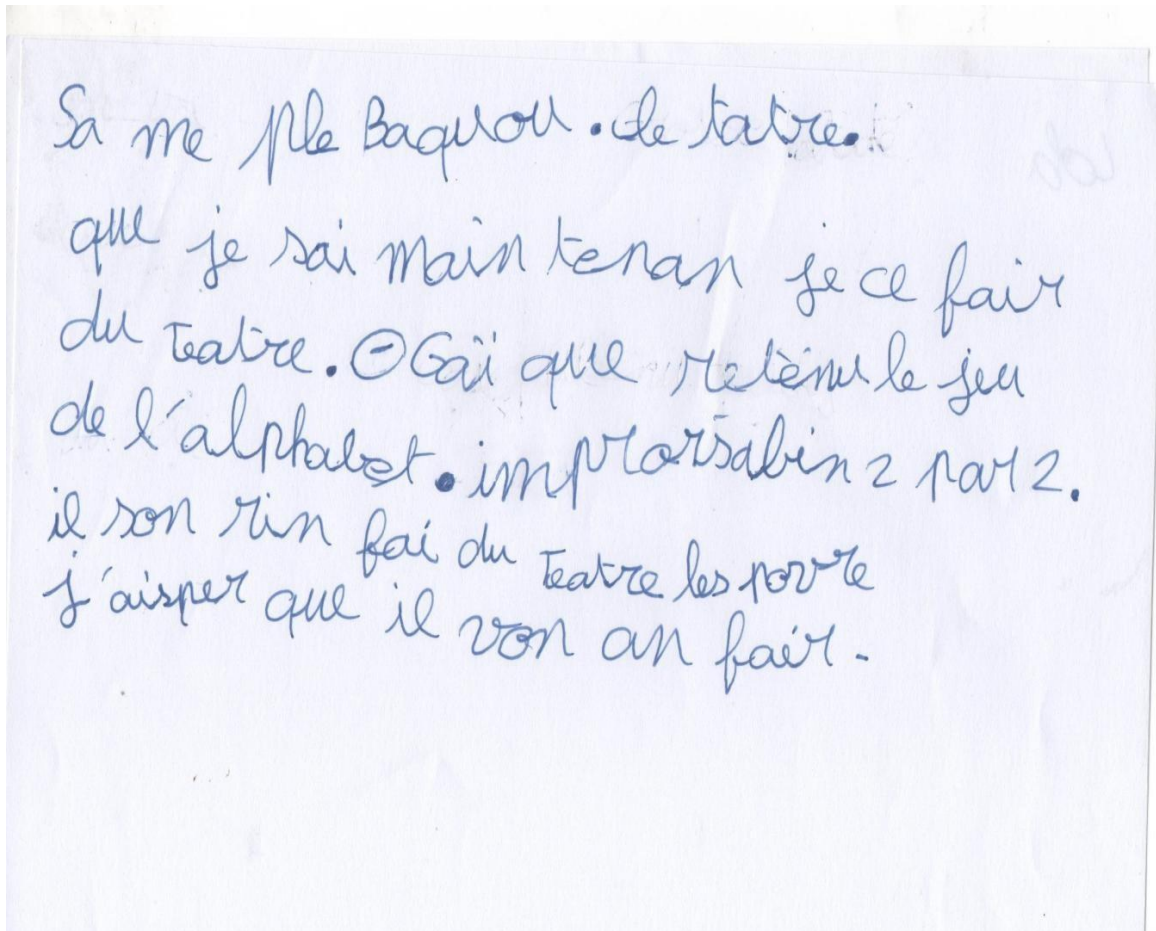 Sa me ple Baquou . de tatre.
que je sai main tenan je ce fair
du teatre. Gaï que retenu le jeu
de l'alphabet . improrsabin 2 par 2.
il son rin fai du teatre les povre
j'aisper que il von an fair.